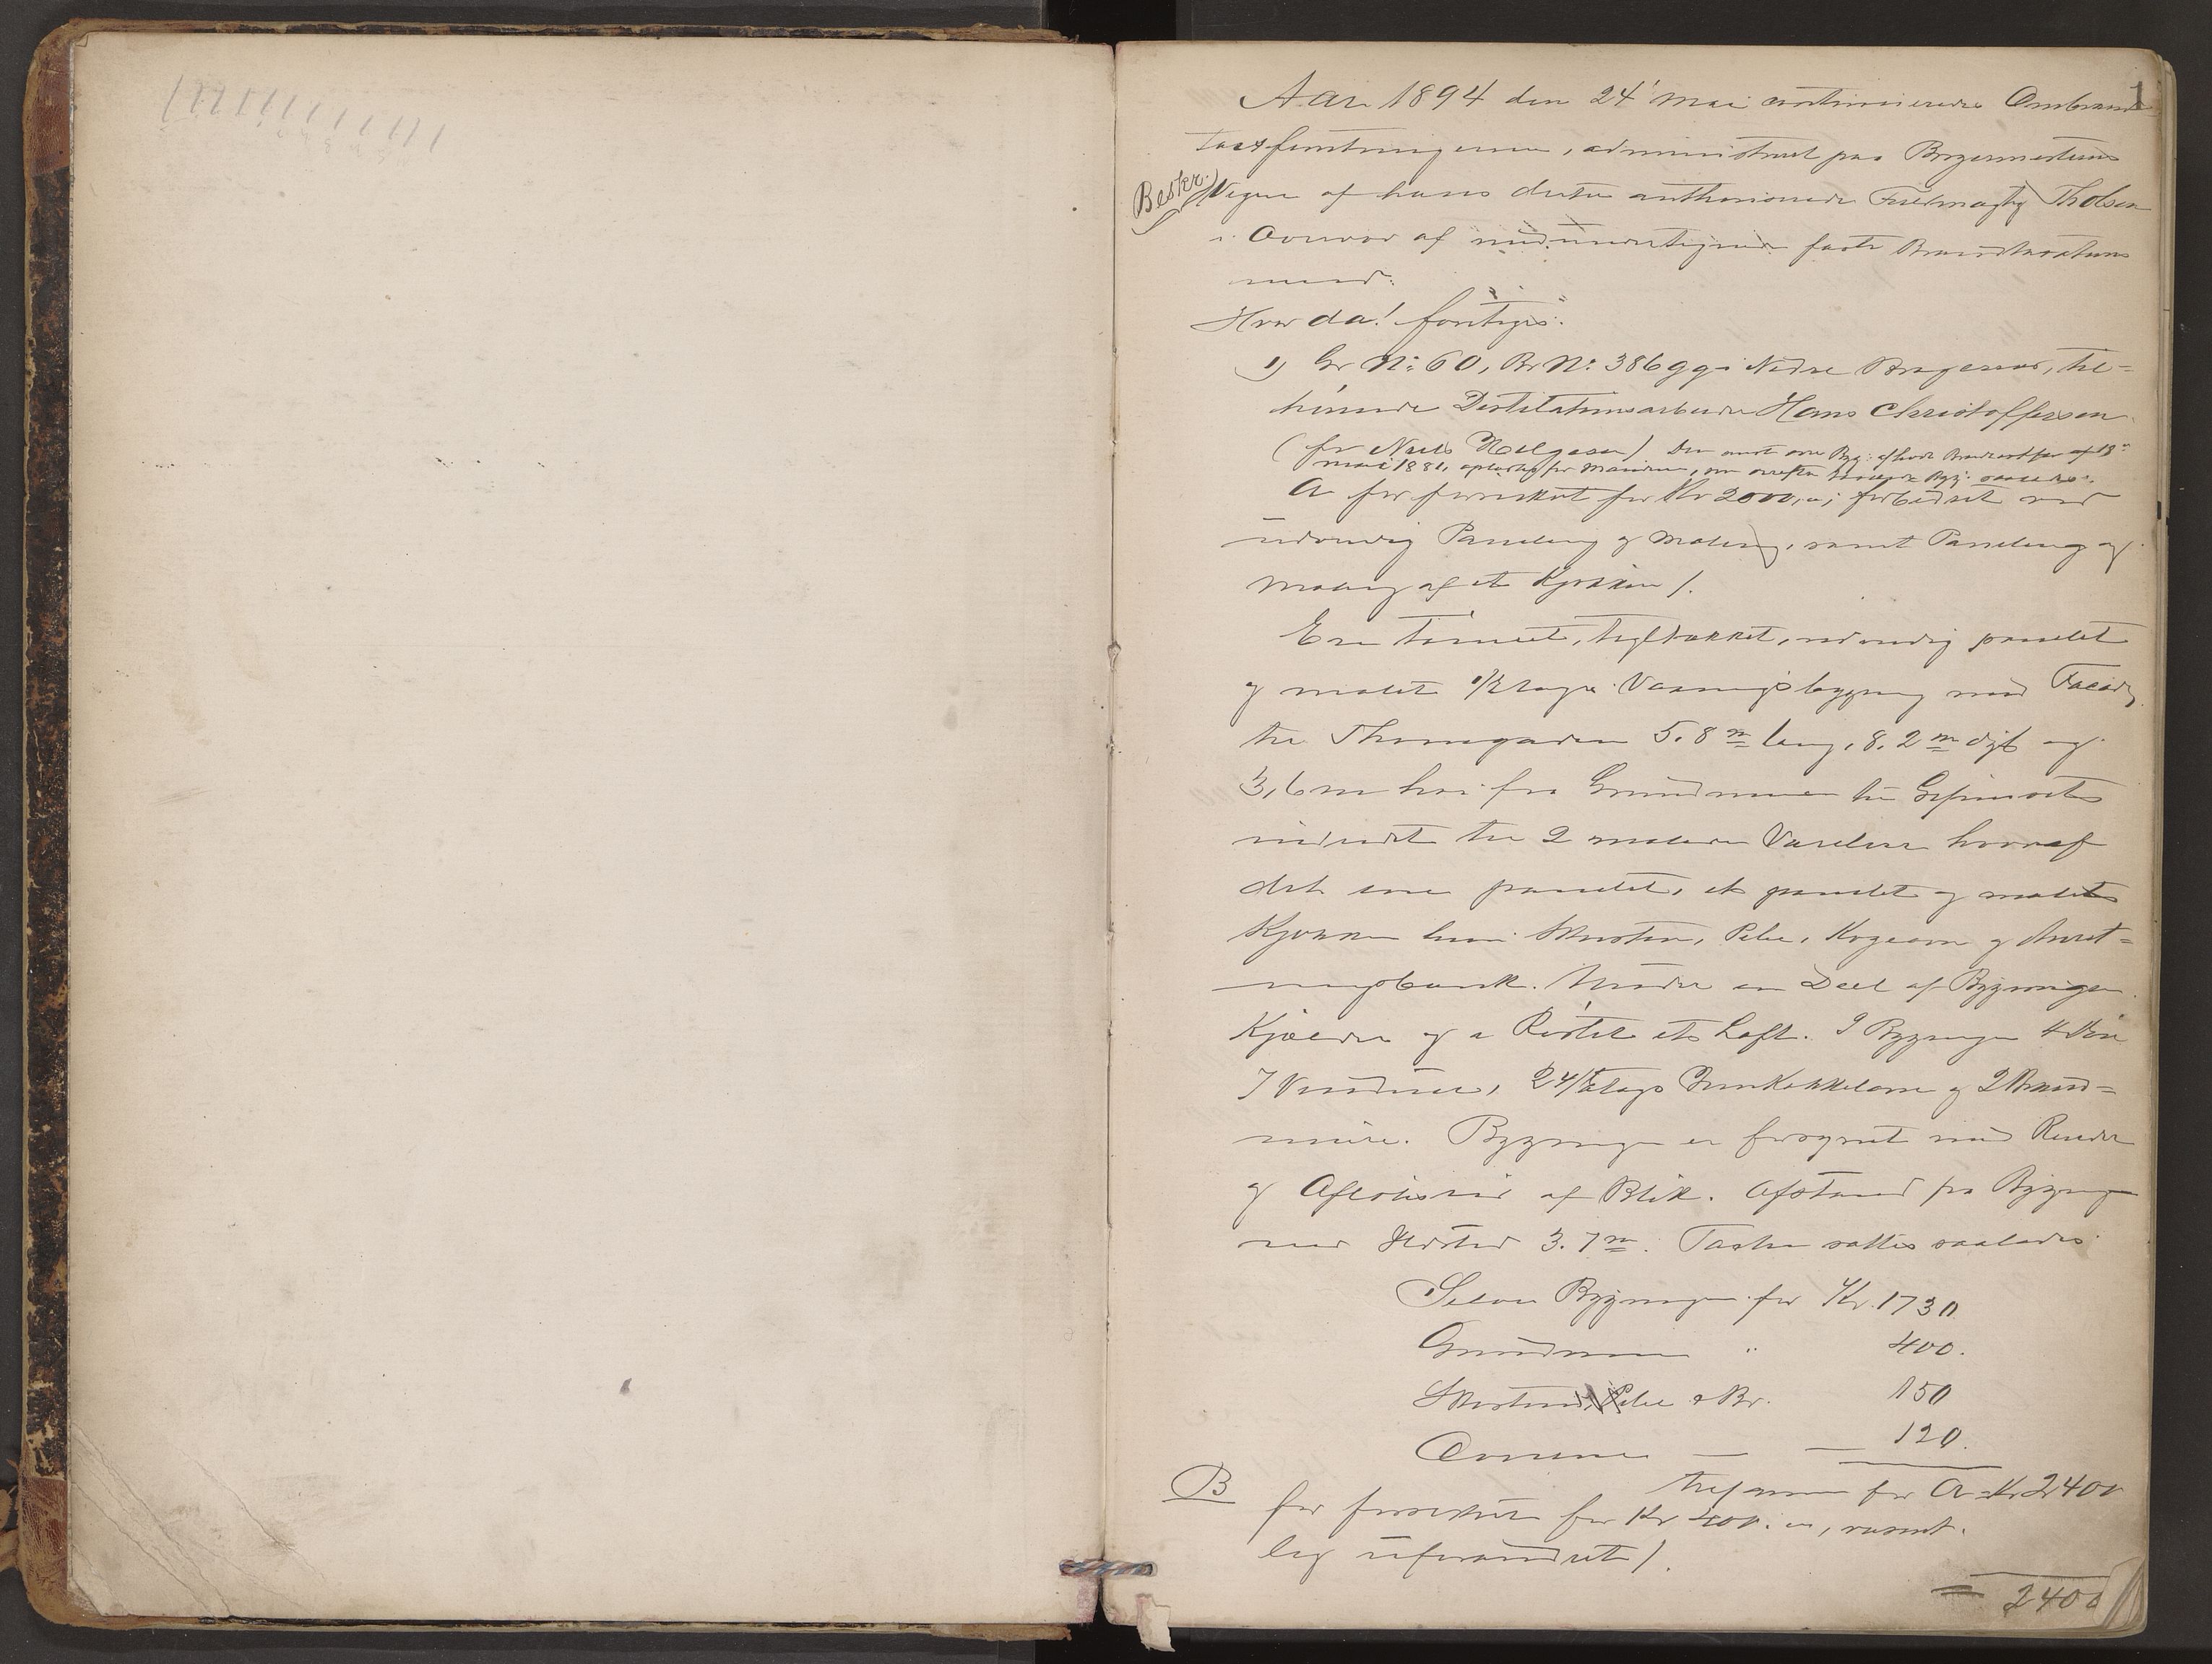 1
Aar 1894 den 24' Mai continueredes Ombrand-
taxtforretningerne, administreret paa Borgermesterens
Beskr.
Vegne af hans dertil authoriserede Fuldmægtig Th Olsen
i Overvær af nedundertegnede faste Brandtaxtions
mænd.
Hvor da! foretoges:
1) Gr No: 60, Br No: 386 gg i Nedre Bragernes, til=
hørende Destilationsarbeider Hans Christoffersen
(før Niels Helgesen) Den
Mai 1881,
A før forsikret for Kr 2000,"; forbedret ved
udvendig Paneling og Maling, samt Paneling og
Maling af et Kjøkken).
En tømret, teglhænget, udvendig panelet
og malet 1/2 Etages Vaaningsbygning med Facade
til Thornegaden 5.8 m lang, 8.2 m dyb og
3,6 m høi fra Grundmuren til Gesimsets
indredet til 2 malede Værelser hvoraf
det ene panelet, et panelet og malet
Kjøkken hvori Skorsten, Pibe, Kogeovn og Anret=
ningsbænk. Under en Deel af Bygningen
Kjælder og i Røstet et Loft. I Bygningen 4 Døre
7 Vinduer, 2 4/Etages Jernkakkelovne og 2 Brand=
mure. Bygningen er forsynet med Render
og Afløbsrør af Blik. Afstand fra Bygningen
med Ildsted 3.7 m. Taxten sattes saaledes
Selve Bygningen for Kr. 1730
Grundmuren " 400.
Skorsten, Pibe & Br. 150
Ovnene — — 120.
tilsammen for A = Kr 2400
B
før forsikret for Kr 400. ", væsent.
lig uforandret).
= 2400